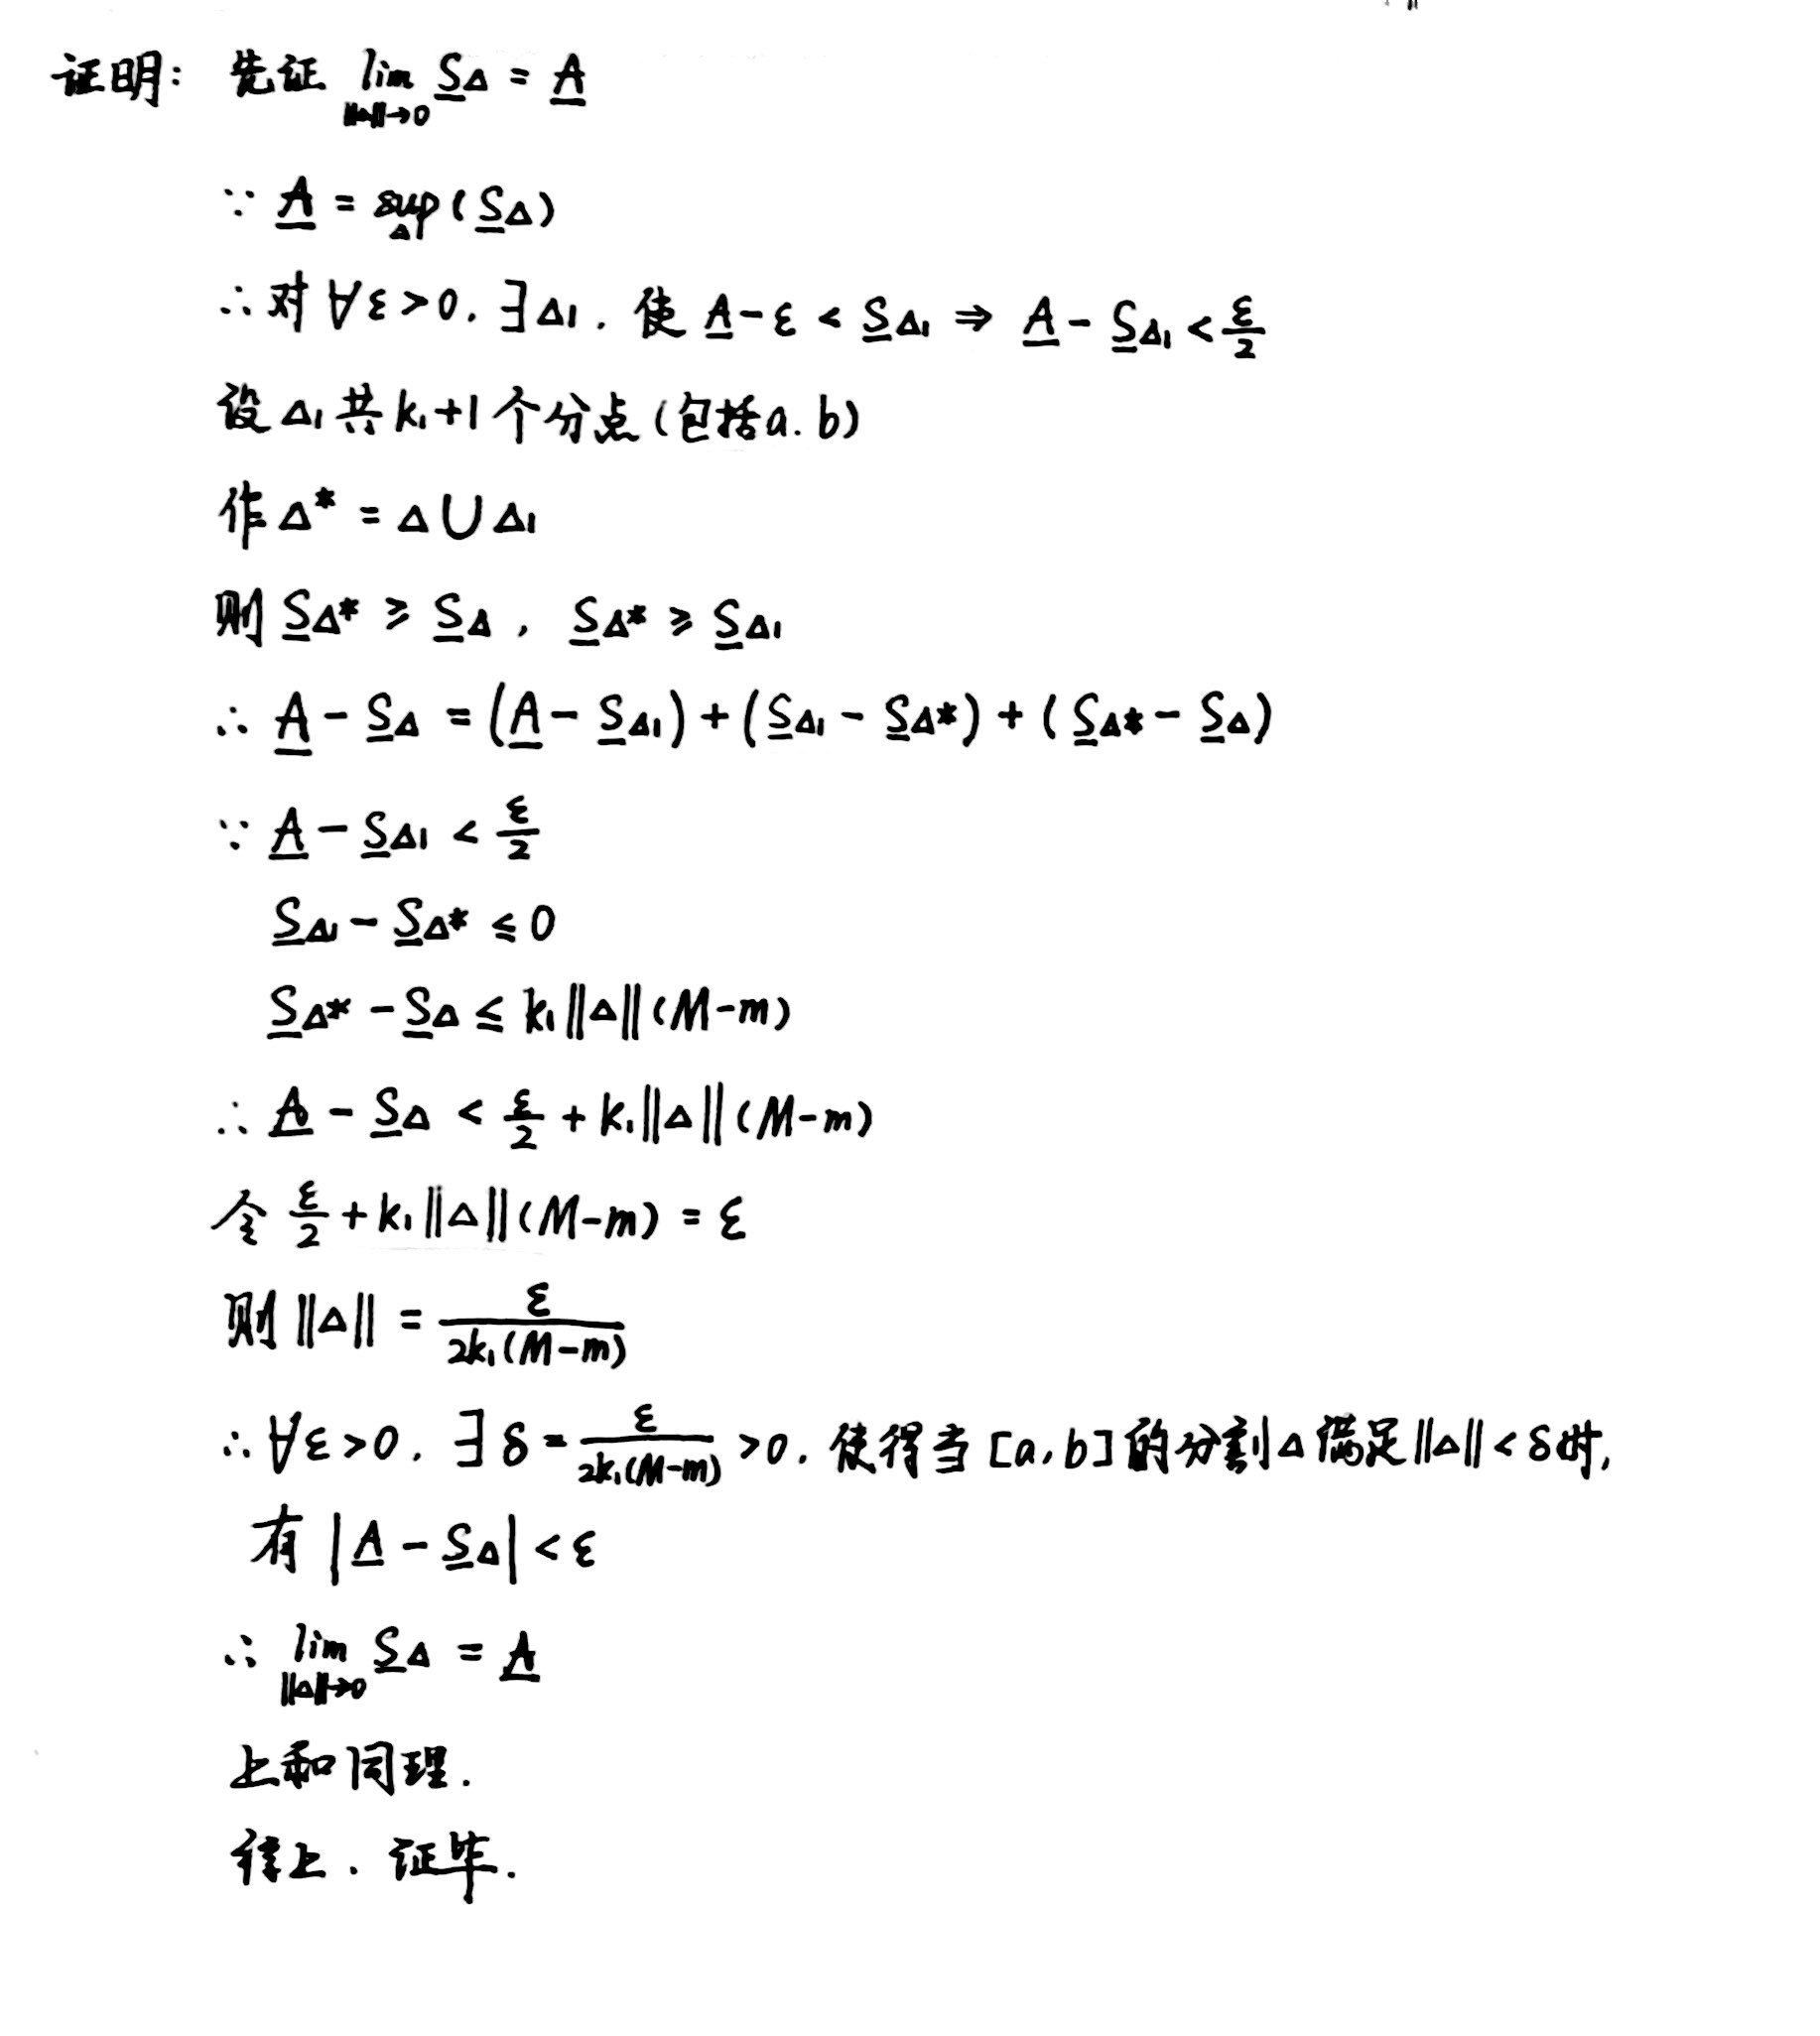 证明: 先证 lim_{||Δ||→0} S̲Δ = A̲
∵ A̲ = sup_Δ (S̲Δ)
∴ 对 ∀ε>0. ∃Δ₁. 使 A̲-ε < S̲Δ₁ ⇒ A̲ - S̲Δ₁ < ε/2
设 Δ₁ 共 k₁+1 个分点 (包括a.b)
作 Δ* = Δ∪Δ₁
则 S̲Δ* ≥ S̲Δ, S̲Δ* ≥ S̲Δ₁
∴ A̲ - S̲Δ = (A̲ - S̲Δ₁) + (S̲Δ₁ - S̲Δ*) + (S̲Δ* - S̲Δ)
∵ A̲ - S̲Δ₁ < ε/2
S̲Δ₁ - S̲Δ* ≤ 0
S̲Δ* - S̲Δ ≤ k₁||Δ||(M-m)
∴ A̲ - S̲Δ < ε/2 + k₁||Δ||(M-m)
令 ε/2 + k₁||Δ||(M-m) = ε
则 ||Δ|| = ε/(2k₁(M-m))
∴ ∀ε>0. ∃δ = ε/(2k₁(M-m)) >0. 使得当 [a,b] 的分割Δ满足||Δ||<δ时,
有 |A̲ - S̲Δ| < ε
∴ lim_{||Δ||→0} S̲Δ = A̲
上和同理.
综上. 证毕.